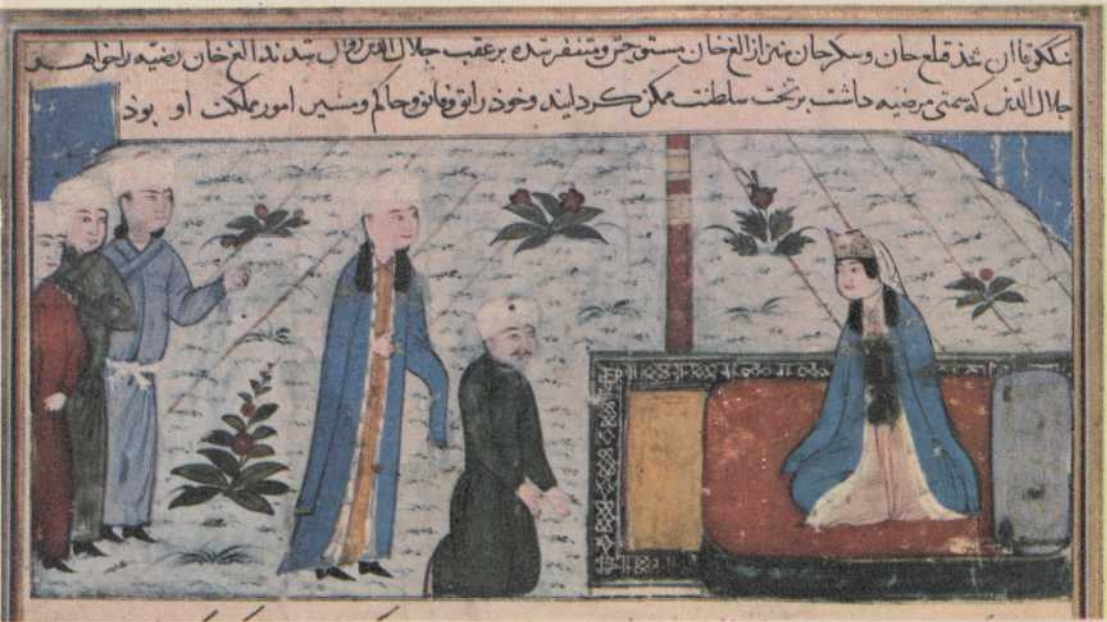 شد قلع خان و سنکر خان نیز از الغ خان مستوحش و متنفر شده بر عقب جلال الدین روان شدند الغ خان رضیه را خواهر
جلال الدین که سمتی مرضیه داشت بر تخت سلطنت ممکن کردانید و خود راتق و فاتق و حاکم و مشیر امور مملکت او بوذ